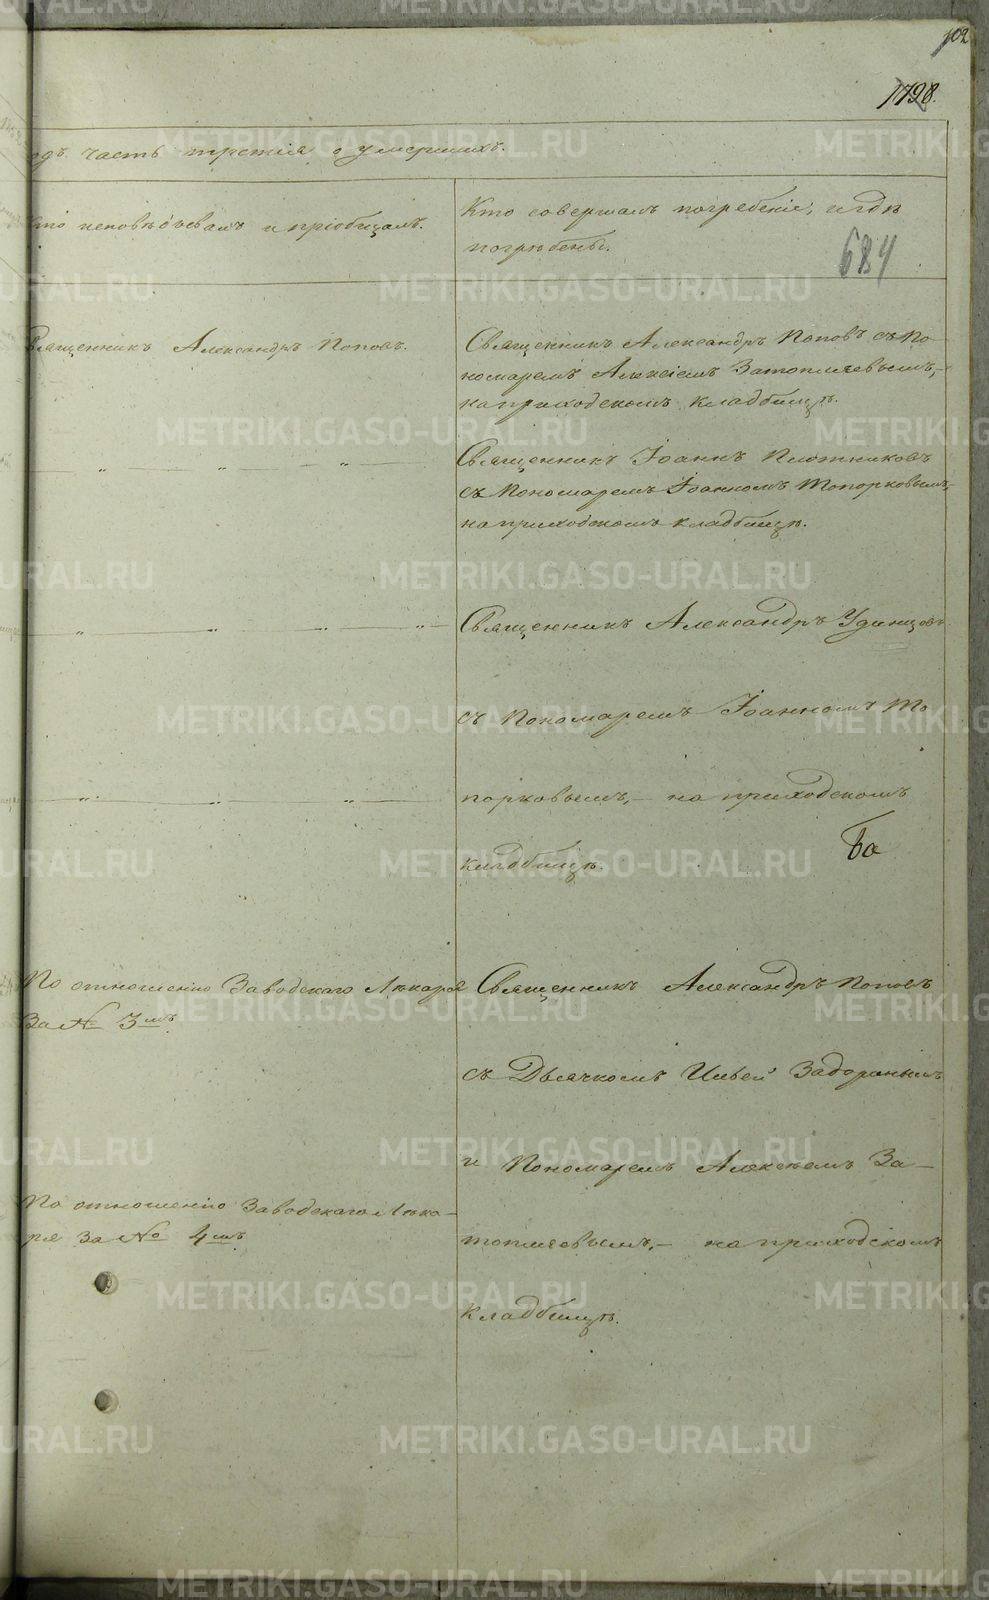 102
1798.
одъ часть третія о умершихъ.
Кто исповѣдывалъ и пріобщалъ.
Кто совершалъ погребеніе, и гдѣ
погрѣбены.
684
Священникъ Александръ Поповъ.
Священникъ Александръ Поповъ съ По-
номаремъ Алексіемъ Затопляевымъ,-
на приходскомъ кладбищѣ.
— „ — „ — „ —
Священникъ Іоаннъ Плотниковъ
съ Пономаремъ Іоанномъ Топорковымъ,
на приходскомъ кладбищѣ.
— „ — „ — „ — „ —
Священникъ Александръ Удинцовъ
съ Пономаремъ Іоанномъ То
— „ — „ — „ —
порковымъ,- на приходскомъ
кладбищѣ.
По отношенію Заводскаго Лѣкаря
За № 3мъ
Священникъ Александръ Поповъ
съ Дьячкомъ Ильей Задоринымъ
и Пономаремъ Алексѣемъ За-
По отношенію Заводскаго Лѣка-
ря За № 4мъ
топляевымъ,- на приходскомъ
кладбищѣ.
METRIKI.GASO-URAL.RU